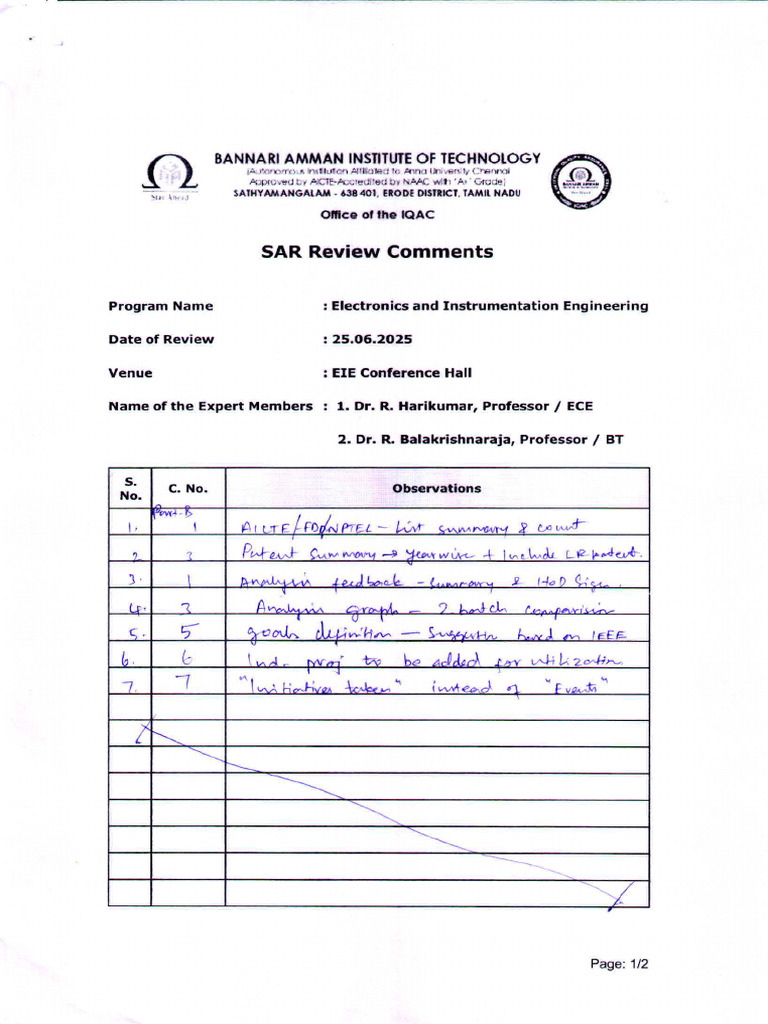 BANNARI AMMAN INSTITUTE OF TECHNOLOGY
(Autonomous Institution Affiliated to Anna University Chennai
Approved by AICTE-Accredited by NAAC with "A+" Grade)
SATHYAMANGALAM - 638 401, ERODE DISTRICT, TAMIL NADU
Stay Ahead
Office of the IQAC
SAR Review Comments
Program Name : Electronics and Instrumentation Engineering
Date of Review : 25.06.2025
Venue : EIE Conference Hall
Name of the Expert Members : 1. Dr. R. Harikumar, Professor / ECE
2. Dr. R. Balakrishnaraja, Professor / BT
S. No. C. No. Observations
Part-B
1. 1 AICTE/FDP/NPTEL - List summary & count
2 3 Patent Summary → yearwise + Include LR patent.
3. 1 Analysis feedback - summary & HoD Sign.
4. 3 Analysis graph - 2 batch comparision
5. 5 goals definition - Suggestion based on IEEE
6. 6 Ind. proj to be added for utilization
7. 7 "Initiatives taken" instead of "Events"
Page: 1/2